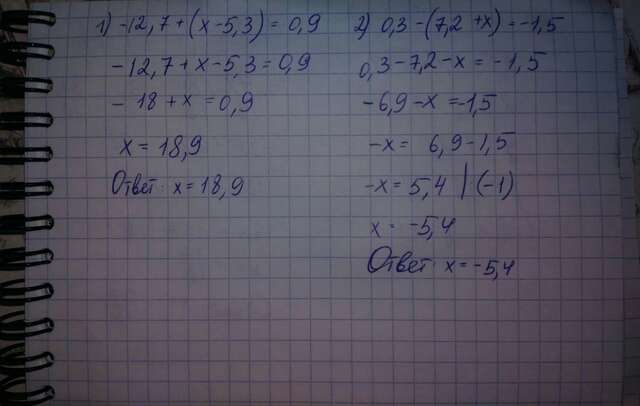 1) -12,7 + (x - 5,3) = 0,9
-12,7 + x - 5,3 = 0,9
- 18 + x = 0,9
x = 18,9
Ответ: x = 18,9
2) 0,3 - (7,2 + x) = -1,5
0,3 - 7,2 - x = -1,5
-6,9 - x = -1,5
-x = 6,9 - 1,5
-x = 5,4 | (-1)
x = -5,4
Ответ: x = -5,4